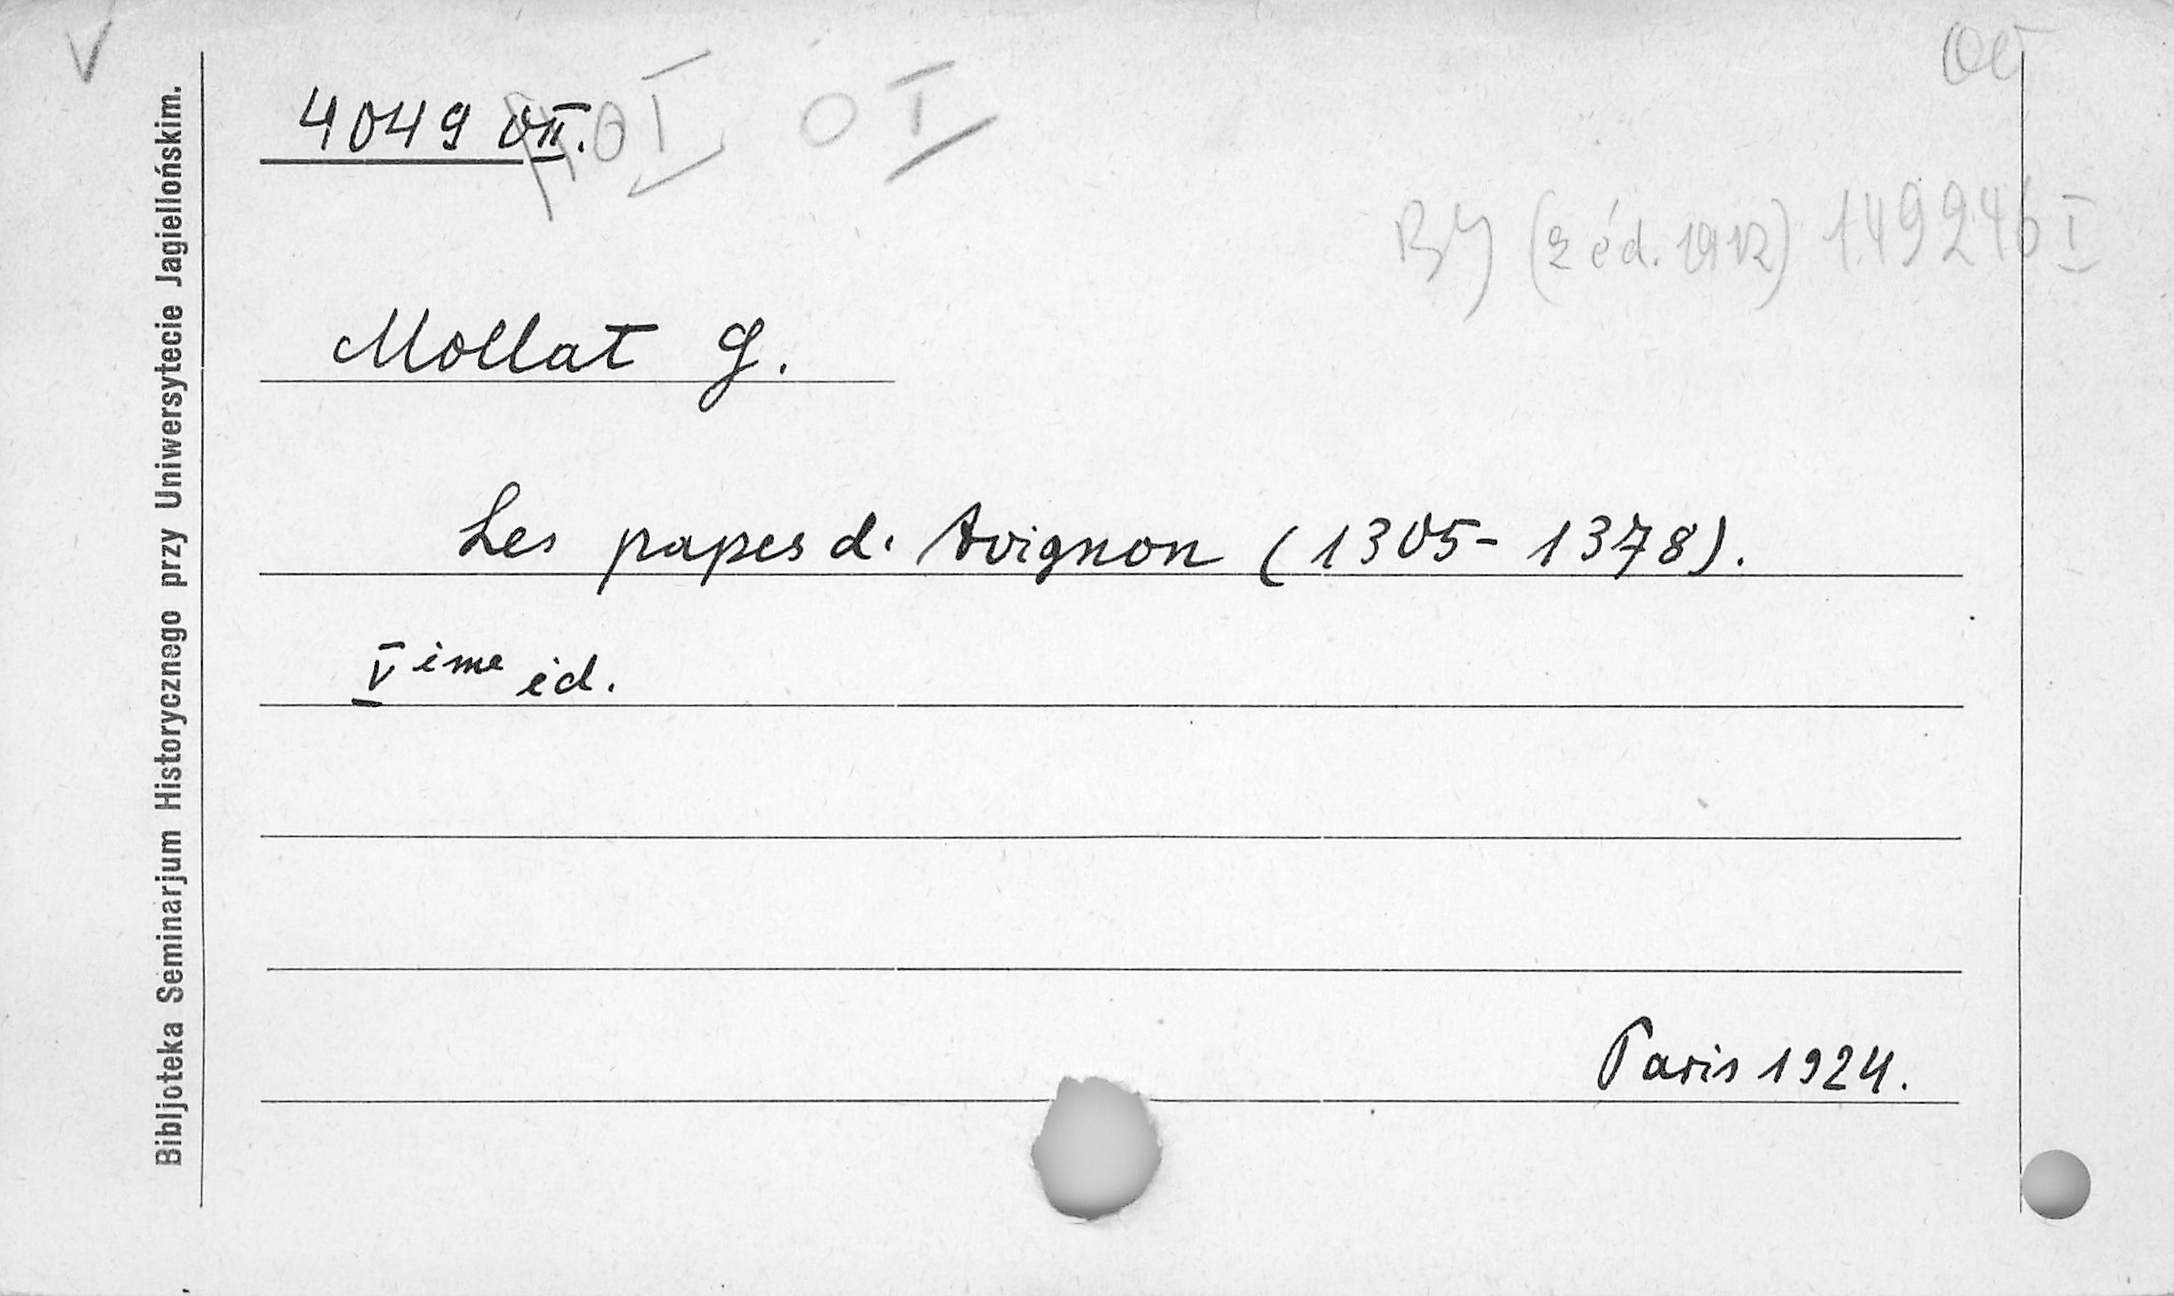 V
4049 OII. OI OI
BJ (2 éd. 1912) 149246 I
Mollat G.
Les papes d. Avignon (1305-1378).
V ième éd.
Paris 1924.
Bibljoteka Seminarjum Historycznego przy Uniwersytecie Jagiellońskim.